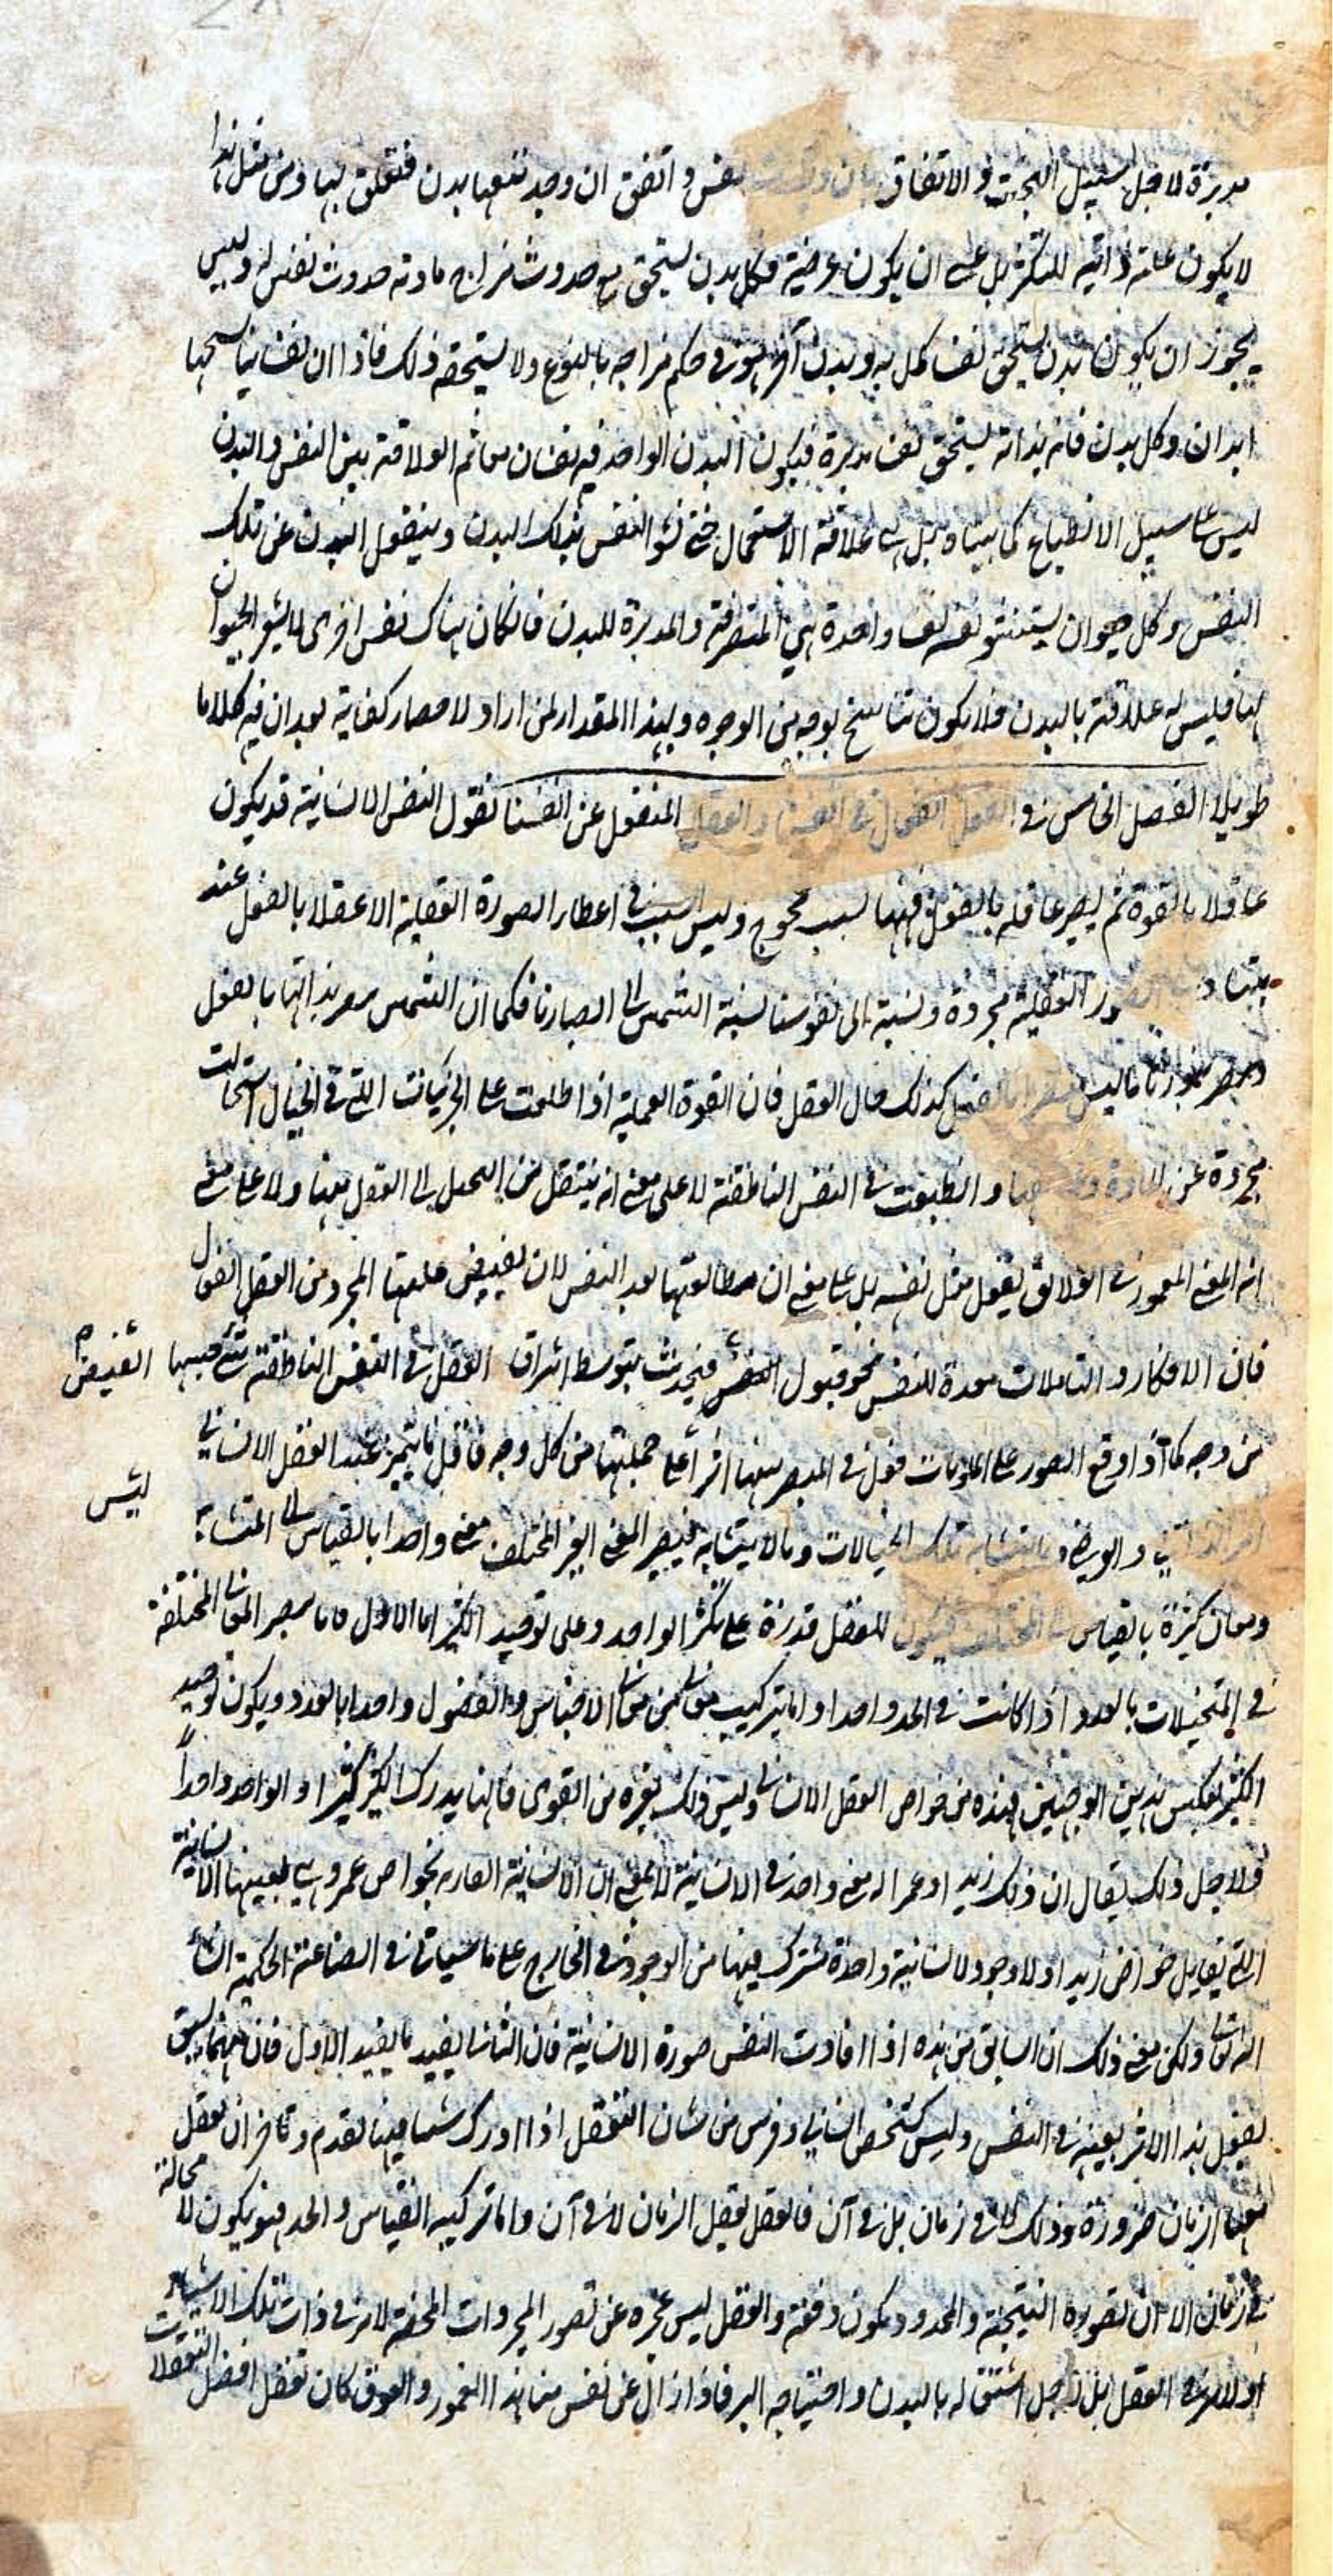 مدبرة لا على سبيل البخت والاتفاق بان وجدت نفس واتفق ان وجد معها بدن فتعلق بها ومن مثل هذا
لا يكون علة ذاتية للتكثر بل عسى ان يكون عرضية فكل بدن يستحق مع حدوث مزاج مادته حدوث نفس له وليس
يجوز ان يكون بدن يستحق نفسا يكمل به وبدن آخر هو في حكم مزاجه بالنوع ولا يستحقه ذلك فاذا ان نفسا تناسخها
ابدان وكل بدن فانه بذاته يستحق نفسا مدبرة فيكون البدن الواحد فيه نفسان معا ثم العلاقة بين النفس والبدن
ليس على سبيل الانطباع كما بيناه بل هي علاقة الاشتغال حتى تشعر النفس بذلك البدن وينفعل البدن عن تلك
النفس وكل حيوان يستشعر نفسه نفسا واحدة هي المتصرفة والمدبرة للبدن فان كان هناك نفس اخرى لا يشعر الحيوان
بها فليس له علاقة بالبدن فلا يكون تناسخ بوجه من الوجوه وبهذا المقدار لمن اراد الاختصار كفاية بعد ان فيه كلاما
طويلا الفصل الخامس في العقل الفعال في انفسنا والعقل المنفعل عن انفسنا نقول النفس الانسانية قد يكون
عاقلا بالقوة ثم يصير عاقلة بالفعل فههنا سبب مخرج وليس سبب في اعطاء الصورة العقلية الا عقلا بالفعل عنده
الصور العقلية مجردة ونسبته الى نفوسنا نسبة الشمس الى ابصارنا فكما ان الشمس يبصر بذاتها بالفعل
ويبصر بنورها ما ليس مبصرا بالفعل كذلك حال العقل فان القوة العقلية اذا اطلعت على الجزئيات التي في الخيال استحالت
مجردة عن المادة وانطبعت في النفس الناطقة لا على معنى انه ينتقل من التخيل الى العقل منها ولا على معنى
انه المعنى المغمور في العلائق يفعل مثل نفسه بل على معنى ان مطالعتها يعد النفس لان يفيض عليها المجرد من العقل الفعال
فان الافكار والتأملات معدة للنفس نحو قبول الفيض فيحدث بتوسط اشراق العقل في النفس الناطقة شيء جنسها
من وجه كما اذا وقع الضوء على الملونات فعل في البصر منها اثرا على جملتها من كل وجه فاول ما يتميز عند العقل الانساني
امر الذاتي والعرضي وما يتشابه تلك الخيالات وما لا يتشابه فيصير المعنى الغير المختلف معنى واحدا بالقياس الى المتشابه
ومعان كثيرة بالقياس الى المختلف فيكون للعقل قدرة على تكثير الواحد وعلى توحيد الكثير اما الاول فانما يصير المعاني المختلفة
في المتخيلات بالعدد اذا كانت في الحد واحدا واما بتركيب معنى من معاني الاجناس والفصول واحدا بالعدد ويكون توحيد
الكثير بعكس هذين الوجهين فهذه من خواص العقل الانساني وليس ذلك لغيره من القوى فانها يدرك الكثير كثيرا والواحد واحدا
ولاجل ذلك يقال ان ذلك زيد او عمرا له معنى واحد في الانسانية لا بمعنى ان الانسانية المقارنة بخواص عمرو هي بعينها الانسانية
التي يقابل خواص زيد اذ لا وجود لانسانية واحدة مشترك فيها من الوجود في الخارج على ما سيأتي في الصناعة الحكمية ان شاء
الله تعالى ولكن معنى ذلك ان السابق من هذه اذا افادت النفس صورة الانسانية فان الثاني يفيد ما يفيد الاول فان ايهما يسبق
يفعل هذا الاثر بعينه في النفس وليس كشخص انساني وفرس من شان العقل اذا ادرك شيئا فيها تقدم وتاخر ان يعقل
معها الزمان ضرورة وذلك لا في زمان بل في آن فالعقل يعقل الزمان لا في آن واما تركيبه القياس والحد فهو يكون لا محالة
في زمان الا ان تصوره النتيجة والمحدود يكون دفعة والعقل ليس عجزه عن تصور المجردات المحضة لامر في ذات تلك الاشياء
او لامر في العقل بل لاجل اشتغاله بالبدن واحتياجه اليه فاذا زال عن نفس منا هذا الغمور والعوق كان تعقل افضل التعقلات
الفيض
ليس